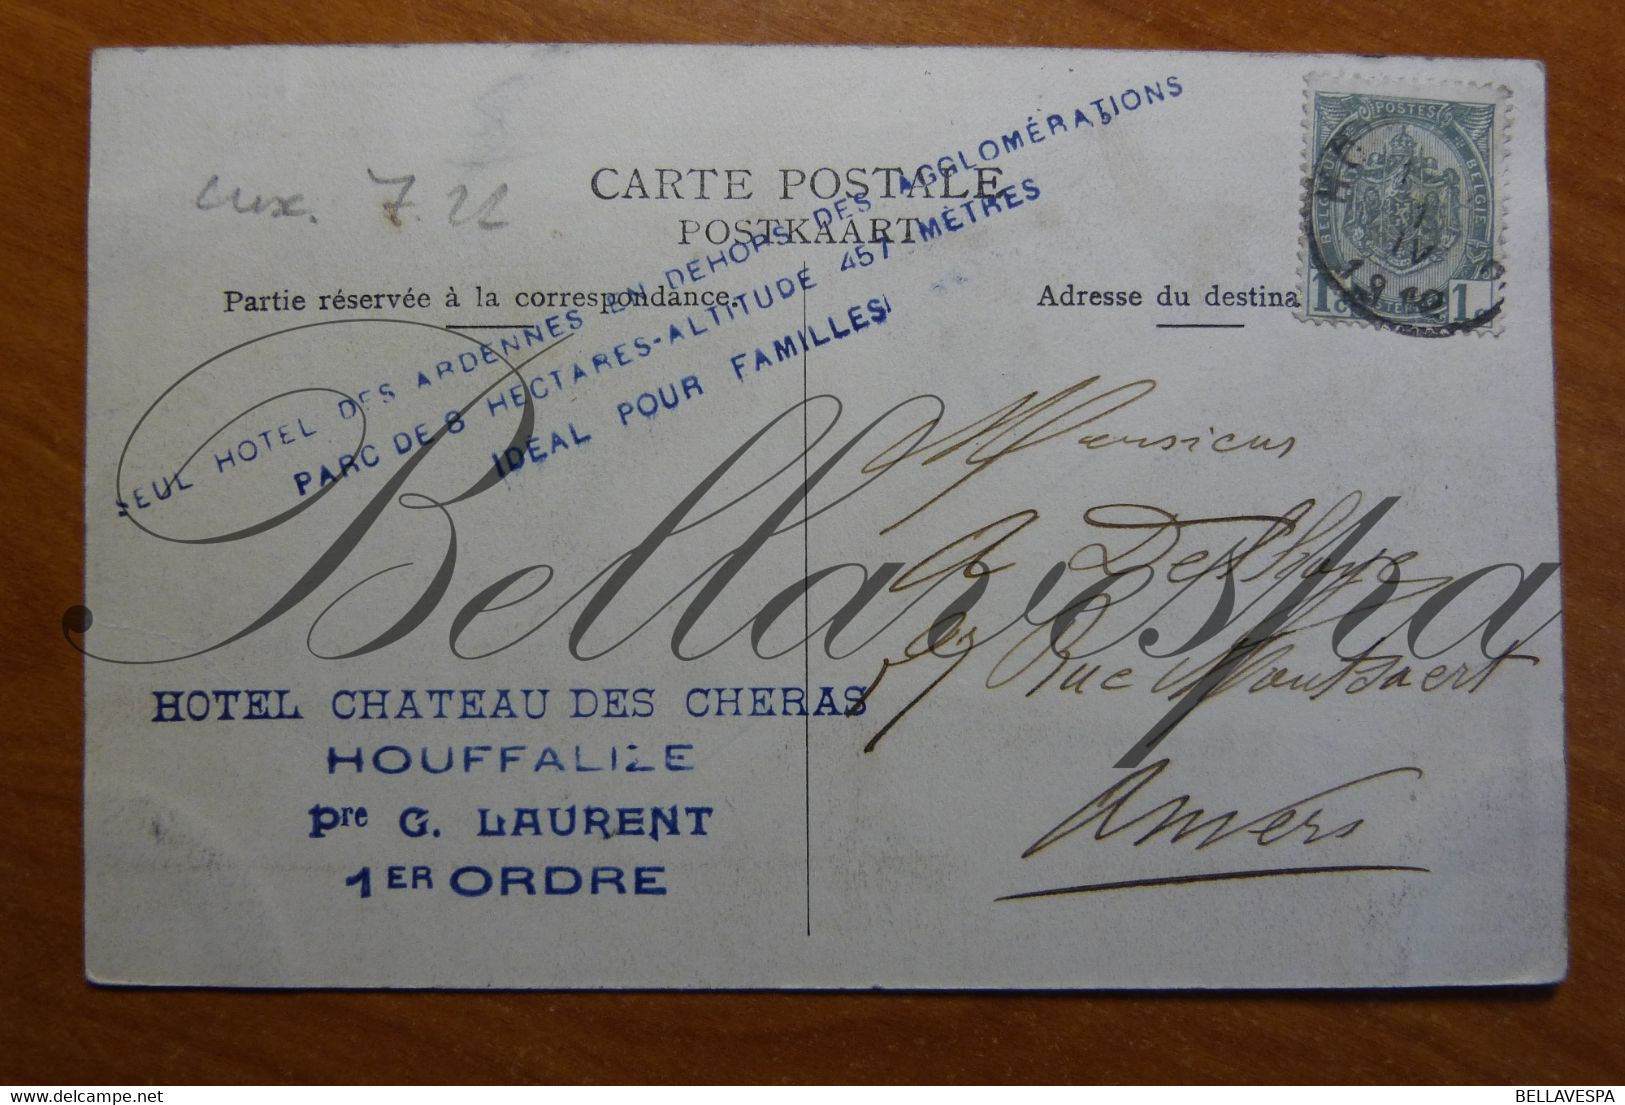 CARTE POSTALE
POSTKAART
Partie réservée à la correspondance.
Adresse du destina
POSTES
BELGIQUE
BELGIE
1c
1c
1910
lux. 7.22
SEUL HOTEL DES ARDENNES EN DEHORS DES AGGLOMÉRATIONS
PARC DE 8 HECTARES-ALTITUDE 457 MÈTRES
IDÉAL POUR FAMILLES
Monsieur
Rue
Anvers
HOTEL CHATEAU DES CHERAS
HOUFFALIZE
Pre G. LAURENT
1ER ORDRE
Bellavespa
BELLAVESPA